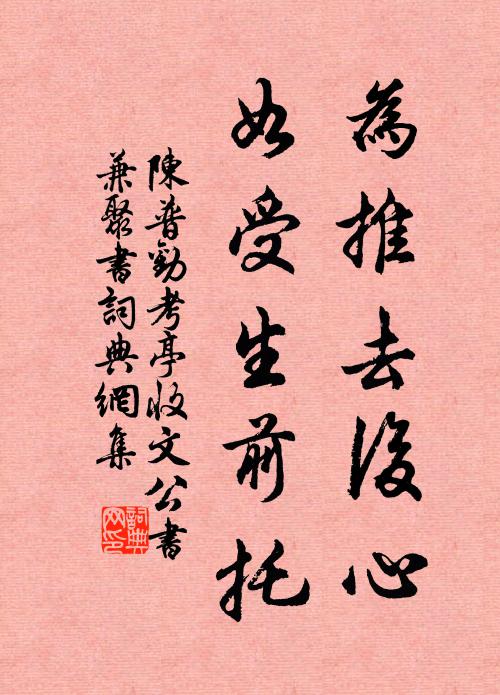 為推去後心
如受生前托
陳普勸考亭收文公書
兼聚書詞典網集
詞典
网印